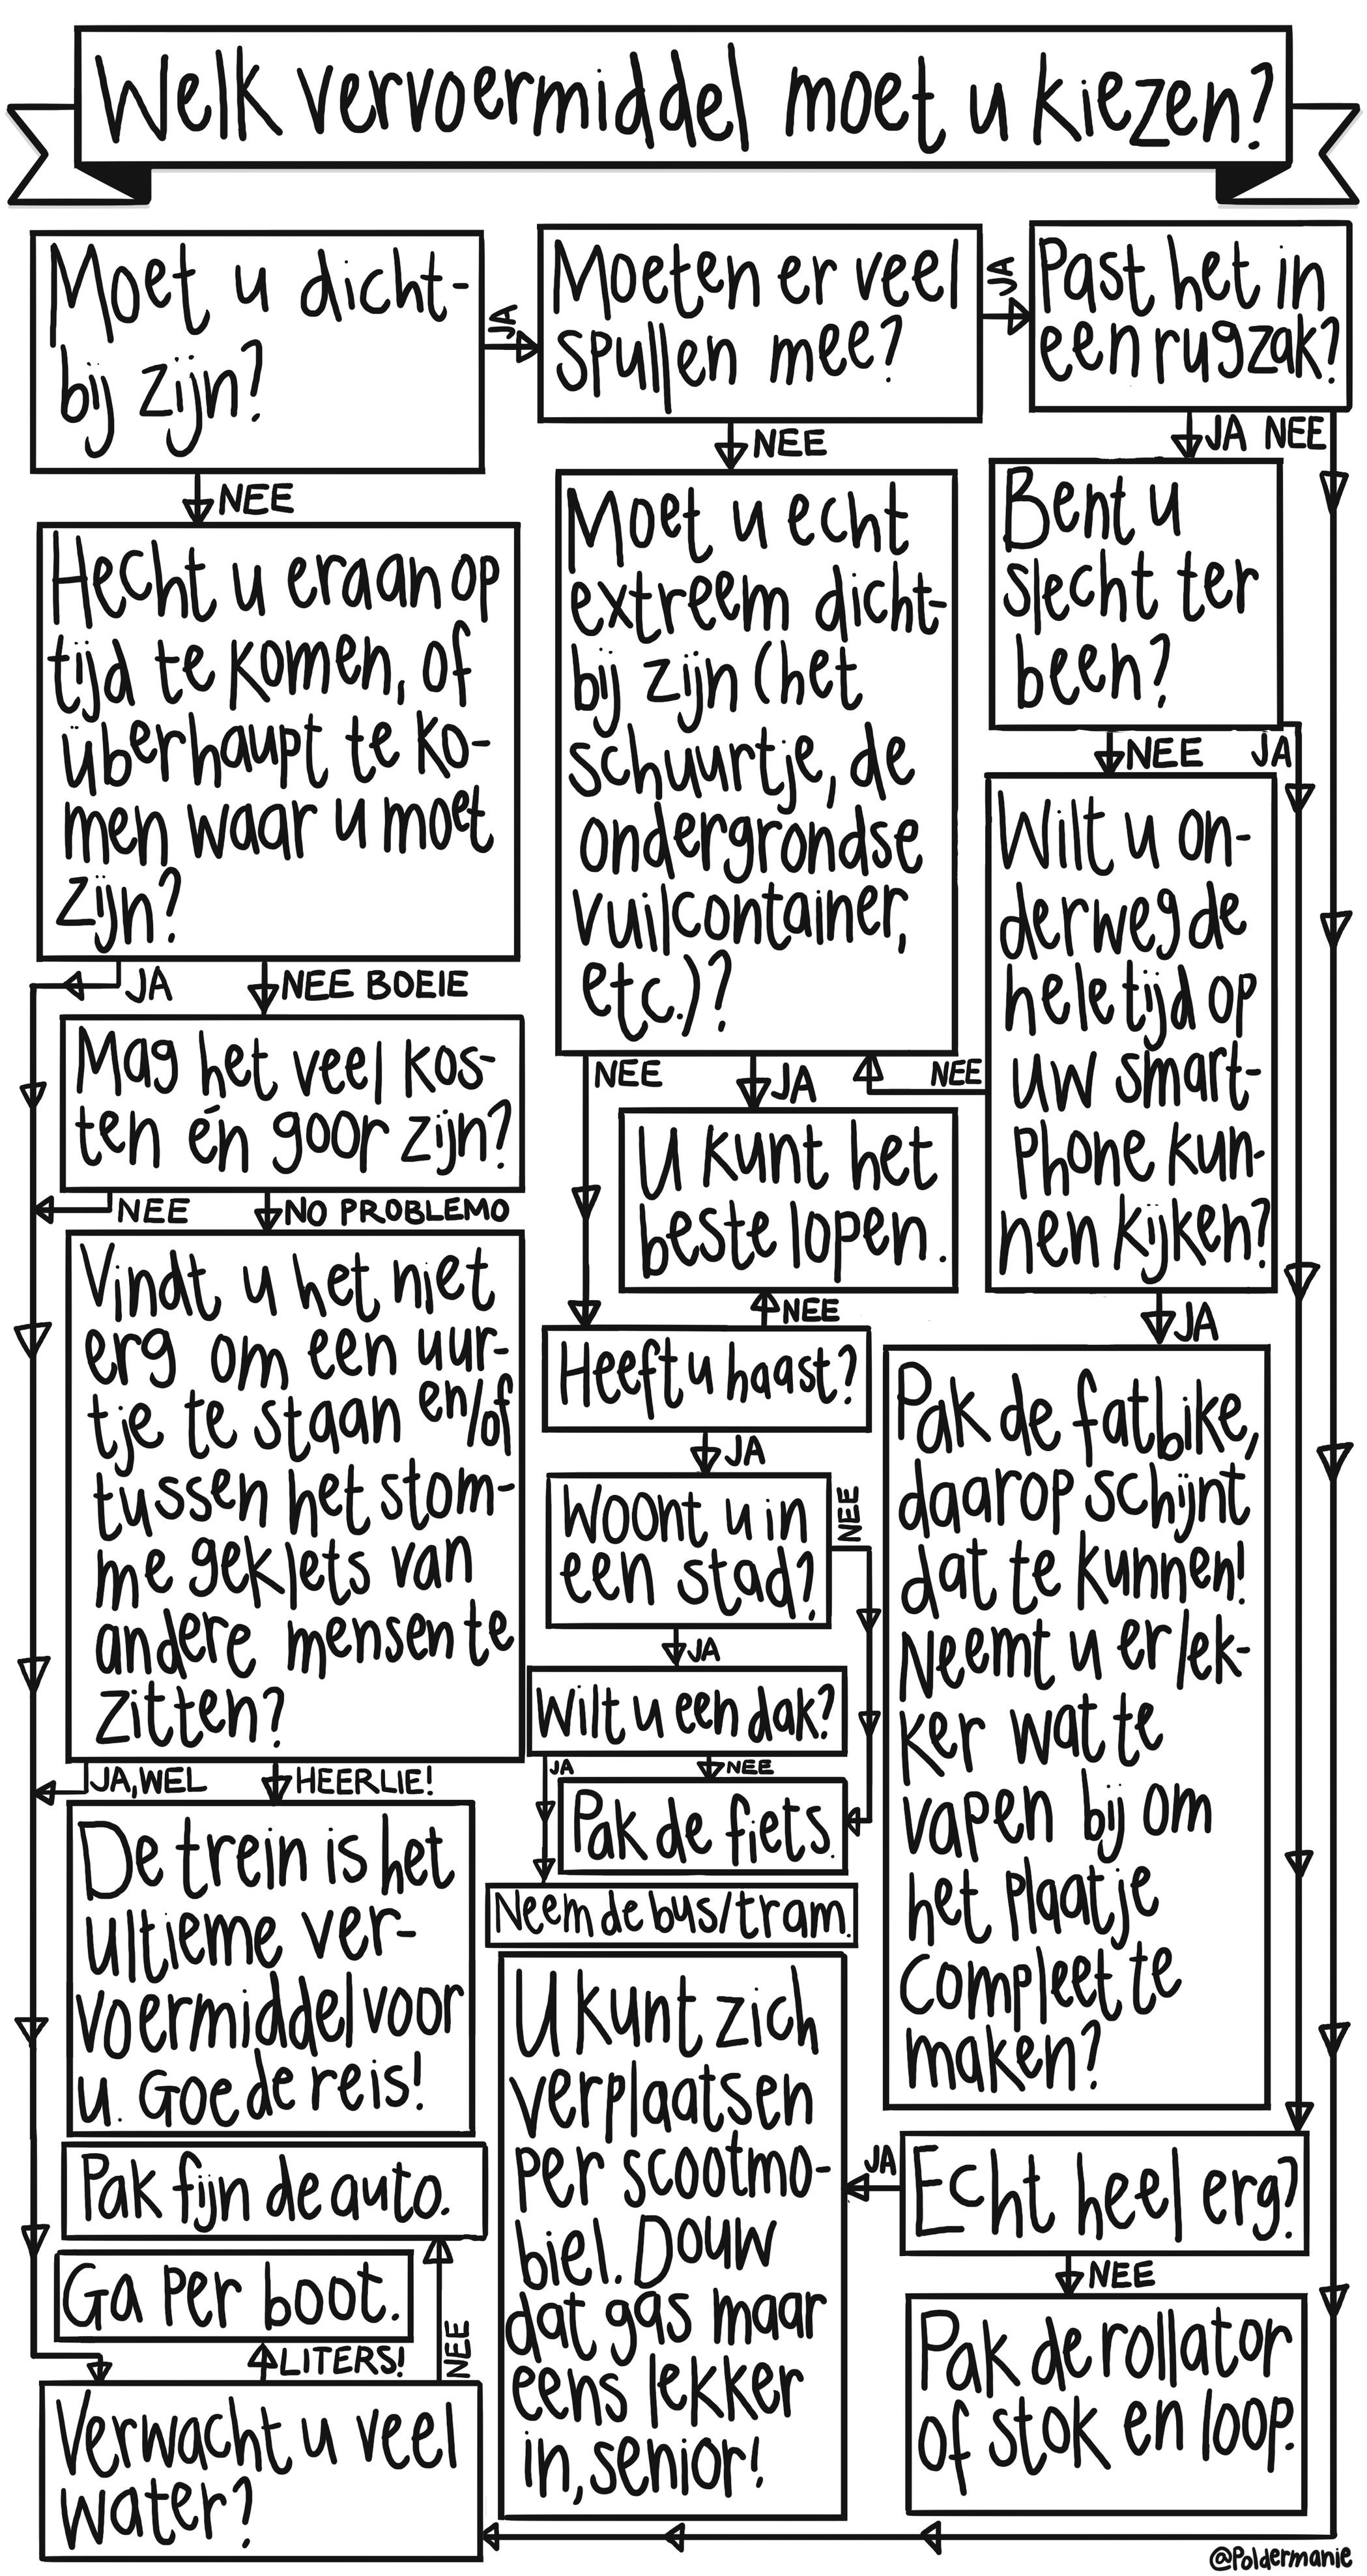 Welk vervoermiddel moet u kiezen?
Moet u dicht-
bij zijn?
JA
NEE
Moeten er veel
spullen mee?
JA
NEE
Past het in
een rugzak?
JA NEE
Hecht u eraan op
tijd te komen, of
überhaupt te ko-
men waar u moet
zijn?
JA
NEE BOEIE
Mag het veel kos-
ten én goor zijn?
NEE
NO PROBLEMO
Vindt u het niet
erg om een uur-
tje te staan en/of
tussen het stom-
me geklets van
andere mensen te
zitten?
JA, WEL
HEERLIE!
De trein is het
ultieme ver-
voermiddel voor
u. Goede reis!
Pak fijn de auto.
Ga per boot.
LITERS!
NEE
Verwacht u veel
water?
Moet u echt
extreem dicht-
bij zijn (het
schuurtje, de
ondergrondse
vuilcontainer,
etc.)?
NEE
JA
U kunt het
beste lopen.
NEE
Heeft u haast?
JA
Woont u in
een stad?
NEE
JA
Wilt u een dak?
JA
NEE
Pak de fiets.
Neem de bus/tram.
U kunt zich
verplaatsen
per scootmo-
biel. Douw
dat gas maar
eens lekker
in, senior!
Bent u
slecht ter
been?
NEE
JA
Wilt u on-
derweg de
hele tijd op
uw smart-
phone kun-
nen kijken?
NEE
JA
Pak de fatbike,
daarop schijnt
dat te kunnen!
Neemt u er lek-
ker wat te
vapen bij om
het plaatje
compleet te
maken?
Echt heel erg?
JA
NEE
Pak de rollator
of stok en loop.
@Poldermanie